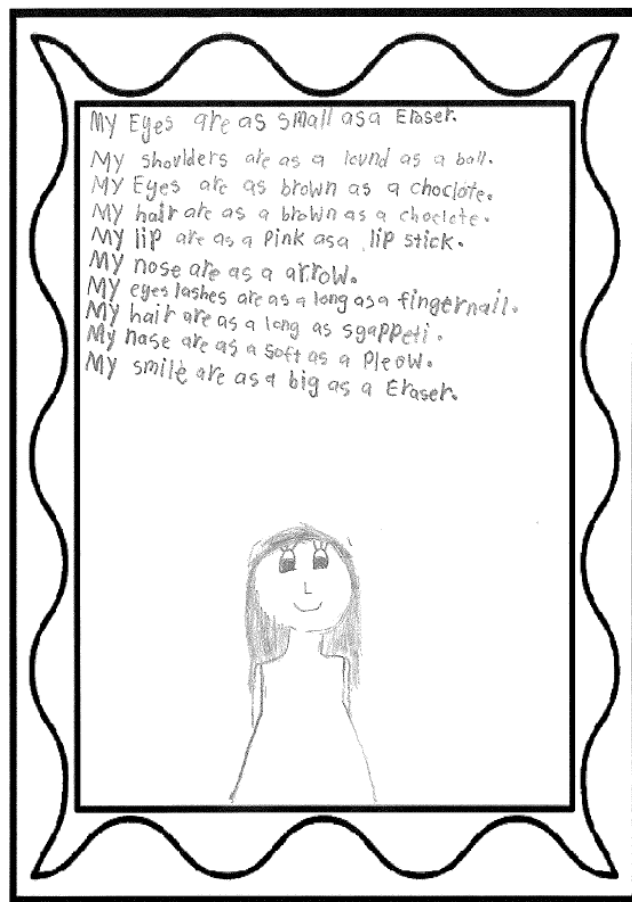 My Eyes are as small as a Eraser.
My shoulders are as a round as a ball.
My Eyes are as brown as a choclote.
My hair are as a brown as a choclete.
My lip are as a Pink as a lip stick.
My nose are as a arrow.
My eyes lashes are as a long as a fingernail.
My hair are as a long as sgappeti.
My nase are as a soft as a Pleow.
My smile are as a big as a Eraser.